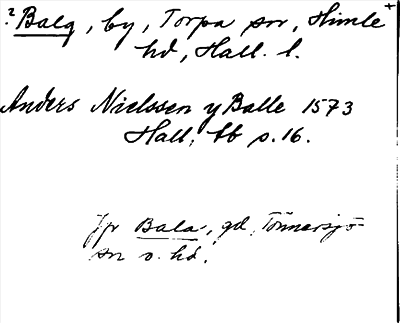 ? Balg, by, Torpa sn, Himle +
hd, Hall. l.
Anders Nielssen y Balle 1573
Hall, tb s. 16.
Jfr Bala, gd, Tönnersjö
sn o. hd.